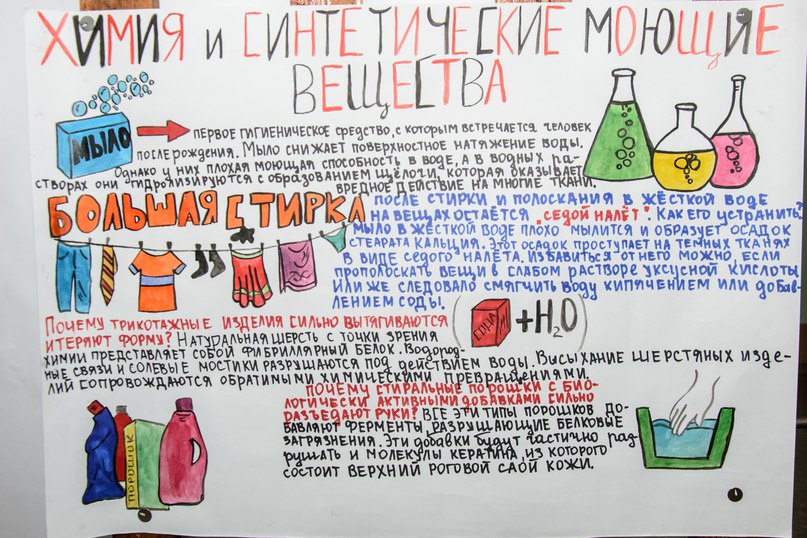 ХИМИЯ и СИНТЕТИЧЕСКИЕ МОЮЩИЕ
ВЕЩЕСТВА
МЫЛО
ПЕРВОЕ ГИГИЕНИЧЕСКОЕ СРЕДСТВО, С КОТОРЫМ ВСТРЕЧАЕТСЯ ЧЕЛОВЕК
ПОСЛЕ РОЖДЕНИЯ. МЫЛО СНИЖАЕТ ПОВЕРХНОСТНОЕ НАТЯЖЕНИЕ ВОДЫ.
ОДНАКО У НИХ ПЛОХАЯ МОЮЩАЯ СПОСОБНОСТЬ В ВОДЕ, А В ВОДНЫХ РА-
СТВОРАХ ОНИ ГИДРОЛИЗИРУЮТСЯ С ОБРАЗОВАНИЕМ ЩЁЛОЧИ, КОТОРАЯ ОКАЗЫВАЕТ
ВРЕДНОЕ ДЕЙСТВИЕ НА МНОГИЕ ТКАНИ.
БОЛЬШАЯ СТИРКА
ПОСЛЕ СТИРКИ И ПОЛОСКАНИЯ В ЖЁСТКОЙ ВОДЕ
НА ВЕЩАХ ОСТАЁТСЯ "СЕДОЙ НАЛЁТ". КАК ЕГО УСТРАНИТЬ?
МЫЛО В ЖЁСТКОЙ ВОДЕ ПЛОХО МЫЛИТСЯ И ОБРАЗУЕТ ОСАДОК
СТЕАРАТА КАЛЬЦИЯ. ЭТОТ ОСАДОК ПРОСТУПАЕТ НА ТЕМНЫХ ТКАНЯХ
В ВИДЕ СЕДОГО НАЛЁТА. ИЗБАВИТЬСЯ ОТ НЕГО МОЖНО, ЕСЛИ
ПРОПОЛОСКАТЬ ВЕЩИ В СЛАБОМ РАСТВОРЕ УКСУСНОЙ КИСЛОТЫ
ИЛИ ЖЕ СЛЕДОВАЛО СМЯГЧИТЬ ВОДУ КИПЯЧЕНИЕМ ИЛИ ДОБАВ-
ЛЕНИЕМ СОДЫ.
СОДА + H2O
ПОЧЕМУ ТРИКОТАЖНЫЕ ИЗДЕЛИЯ СИЛЬНО ВЫТЯГИВАЮТСЯ
И ТЕРЯЮТ ФОРМУ? НАТУРАЛЬНАЯ ШЕРСТЬ С ТОЧКИ ЗРЕНИЯ
ХИМИИ ПРЕДСТАВЛЯЕТ СОБОЙ ФИБРИЛЛЯРНЫЙ БЕЛОК. ВОДОРОД-
НЫЕ СВЯЗИ И СОЛЕВЫЕ МОСТИКИ РАЗРУШАЮТСЯ ПОД ДЕЙСТВИЕМ ВОДЫ. ВЫСЫХАНИЕ ШЕРСТЯНЫХ ИЗДЕ-
ЛИЙ СОПРОВОЖДАЮТСЯ ОБРАТИМЫМИ ХИМИЧЕСКИМИ ПРЕВРАЩЕНИЯМИ.
ПОЧЕМУ СТИРАЛЬНЫЕ ПОРОШКИ С БИО-
ЛОГИЧЕСКИ АКТИВНЫМИ ДОБАВКАМИ СИЛЬНО
РАЗЪЕДАЮТ РУКИ? ВСЕ ЭТИ ТИПЫ ПОРОШКОВ ДО-
БАВЛЯЮТ ФЕРМЕНТЫ, РАЗРУШАЮЩИЕ БЕЛКОВЫЕ
ЗАГРЯЗНЕНИЯ. ЭТИ ДОБАВКИ БУДУТ ЧАСТИЧНО РАЗ-
РУШАТЬ И МОЛЕКУЛЫ КЕРАТИНА, ИЗ КОТОРОГО
СОСТОИТ ВЕРХНИЙ РОГОВОЙ СЛОЙ КОЖИ.
ПОРОШОК